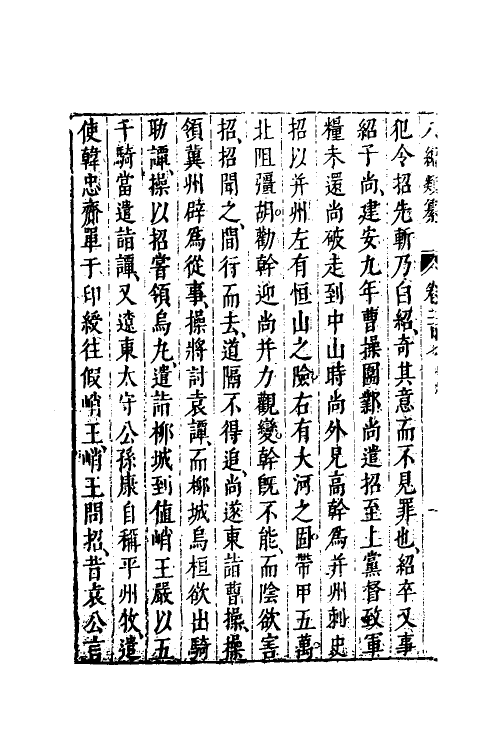 八編類纂 卷二百
犯令招先斬乃白紹奇其意而不見罪也紹卒又事
紹子尚建安九年曹操圍鄴尚遣招至上黨督致軍
糧未還尚破走到中山時尚外兄高幹爲并州刺史
招以并州左有恒山之險右有大河之固帶甲五萬
北阻彊胡勸幹迎尚并力觀變幹旣不能而陰欲害
招招聞之間行而去道隔不得追尚遂東詣曹操操
領冀州辟爲從事操將討袁譚而柳城烏桓欲出騎
助譚操以招嘗領烏丸遣詣柳城到值峭王嚴以五
千騎當遣詣譚又遼東太守公孫康自稱平州牧遣
使韓忠齎單于印綬往假峭王峭王問招昔袁公言